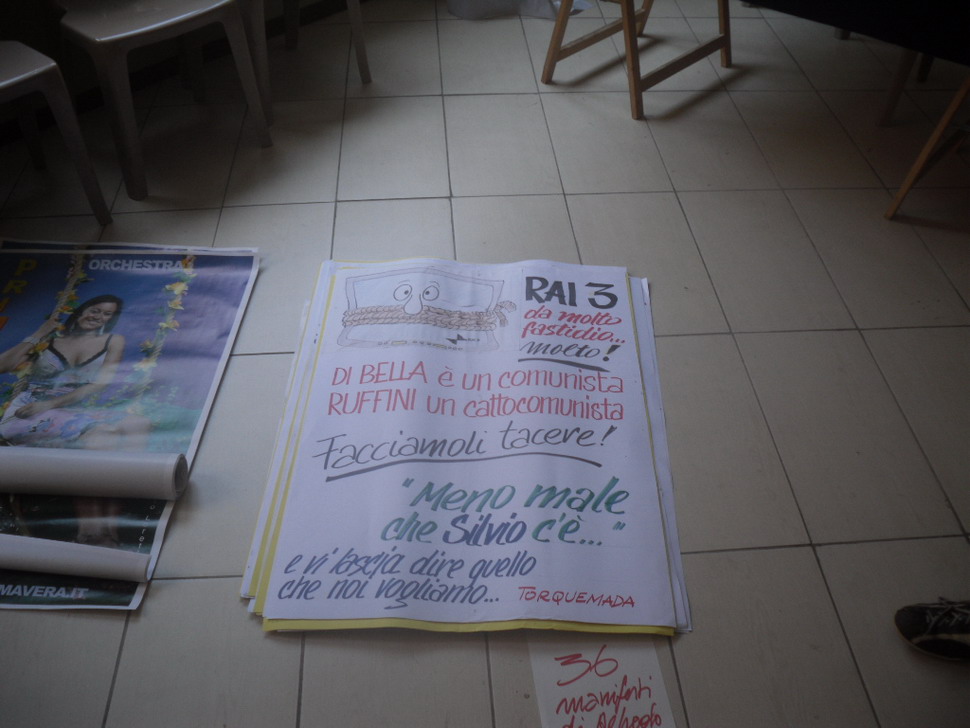 ORCHESTRA
PRI
MAVERA.IT
RAI 3
da molto
fastidio...
molto!
DI BELLA è un comunista
RUFFINI un cattocomunista
Facciamoli tacere!
"Meno male
che Silvio c'è..."
e vi lascia dire quello
che noi vogliamo...
TORQUEMADA
36
manifesti
di